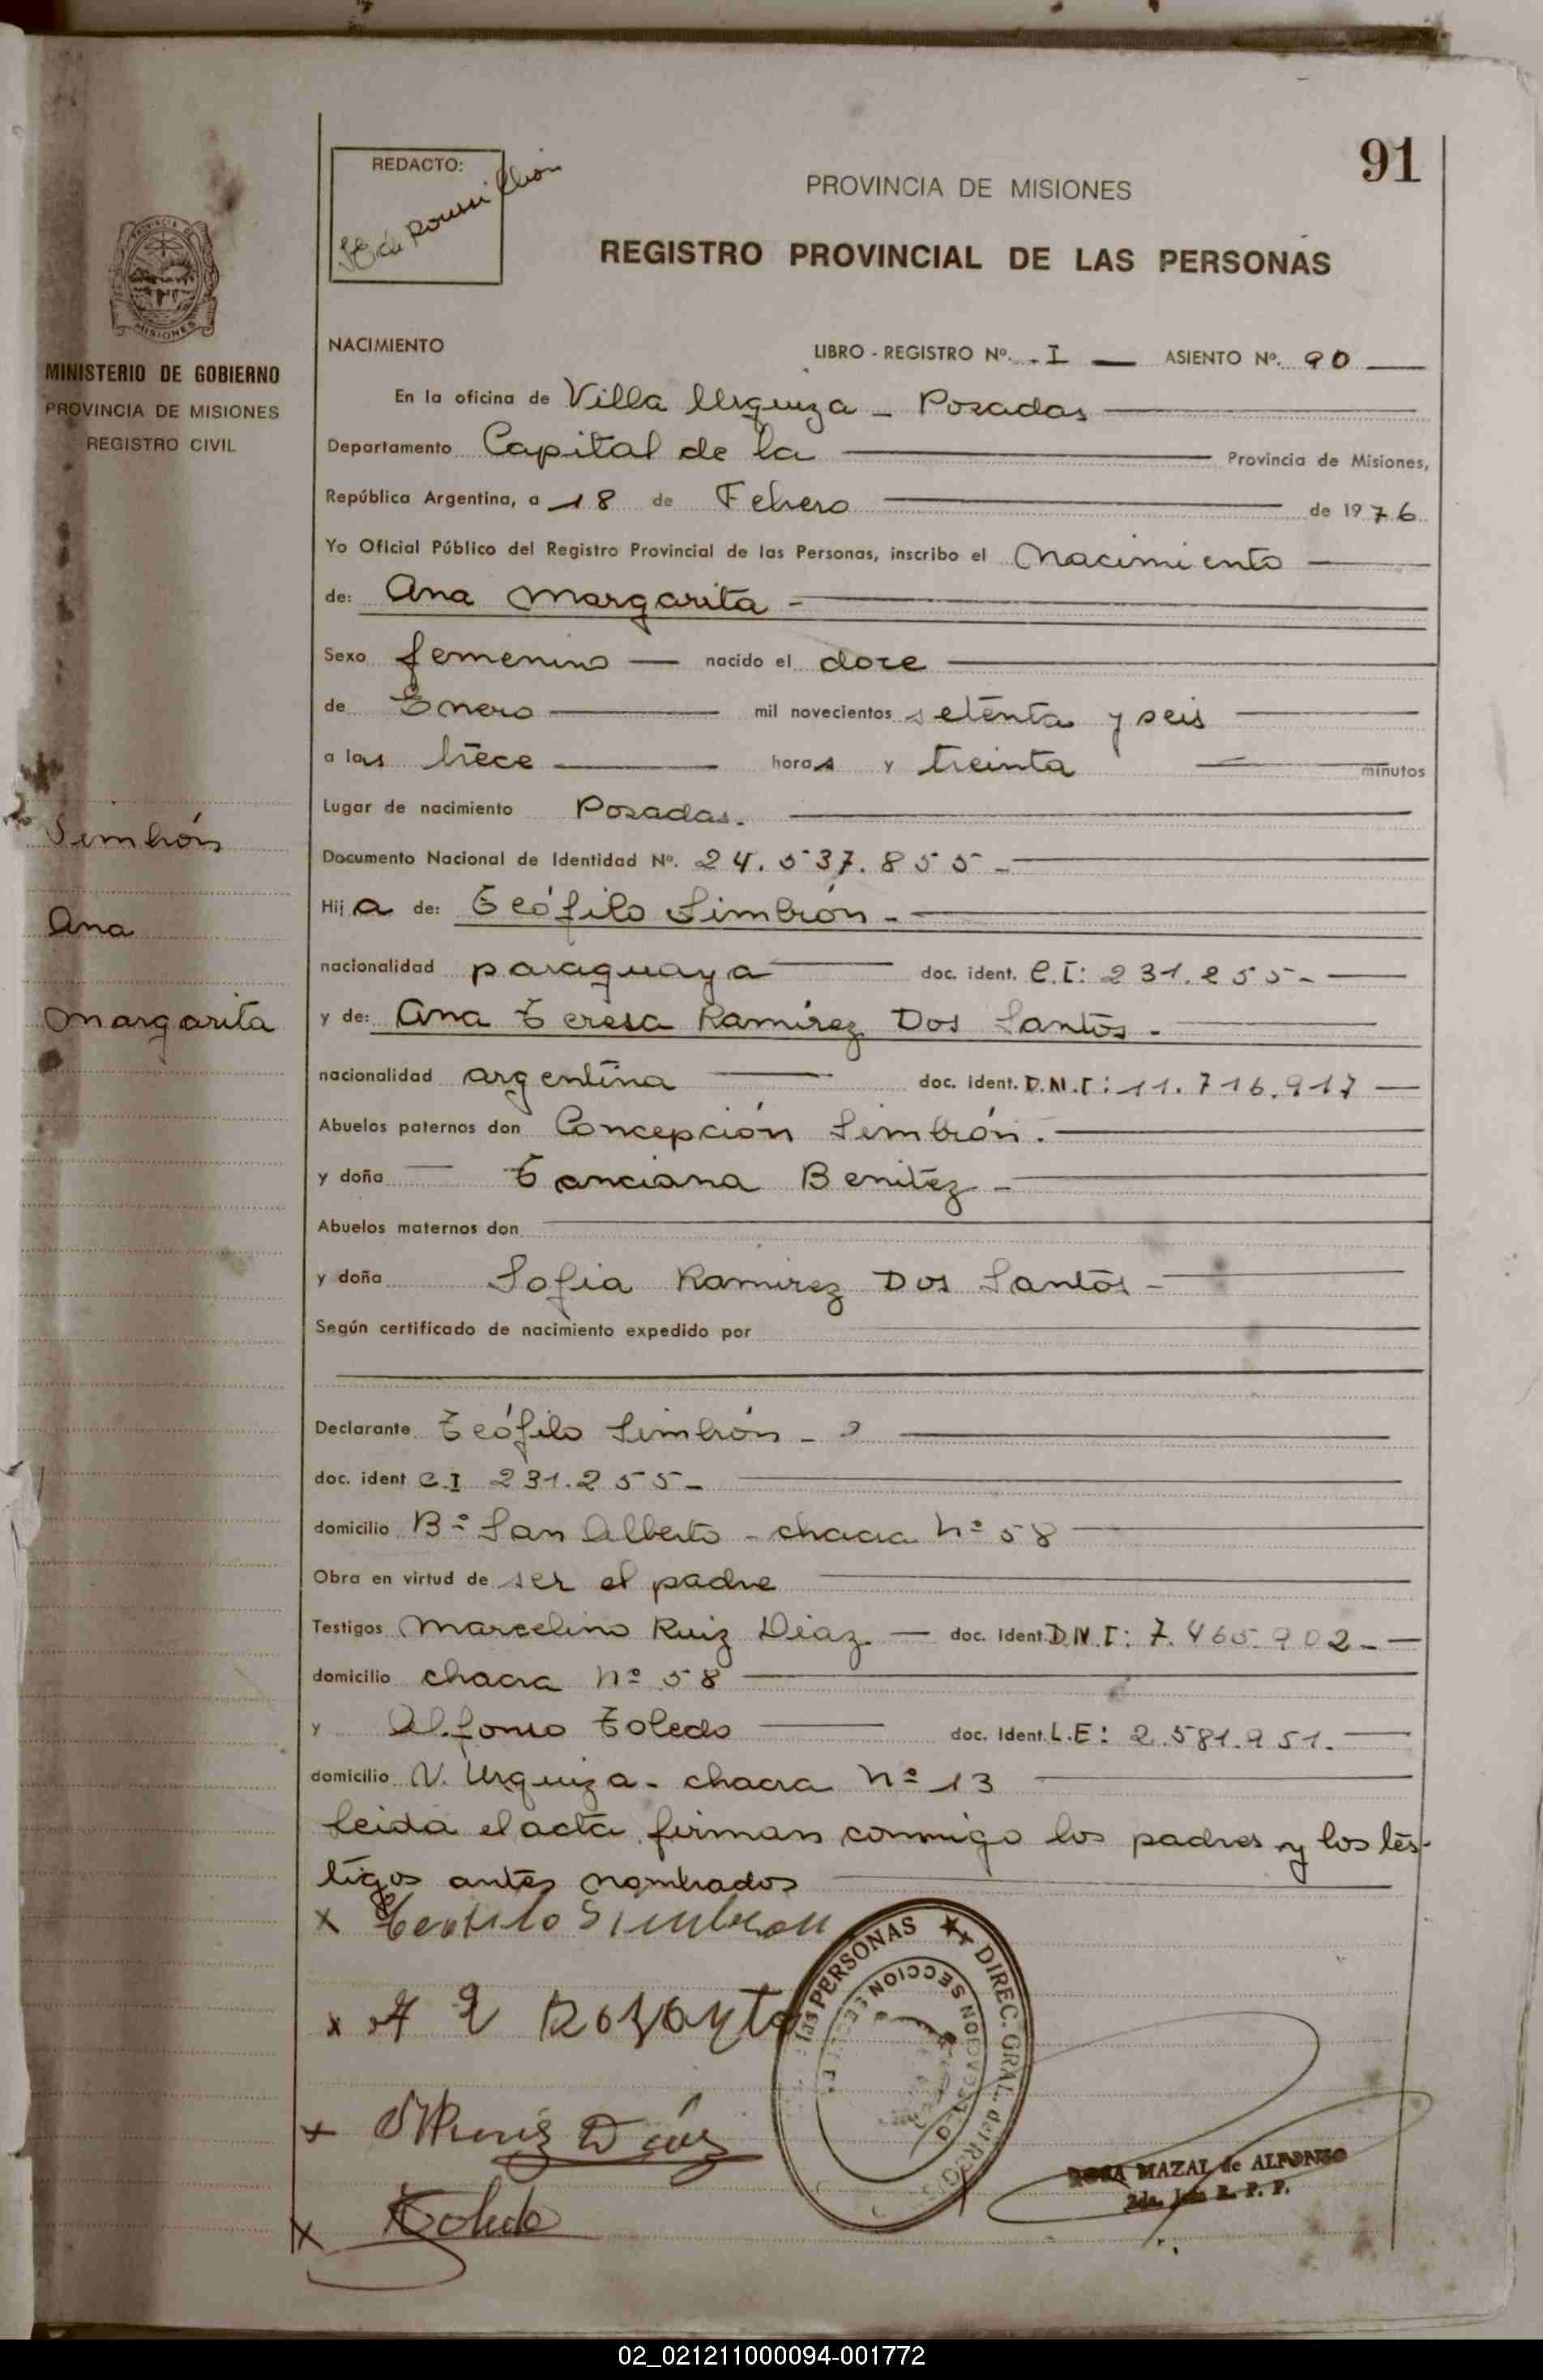 91
REDACTO:
PROVINCIA DE MISIONES
REGISTRO PROVINCIAL DE LAS PERSONAS
MISIONES
MINISTERIO DE GOBIERNO
PROVINCIA DE MISIONES
REGISTRO CIVIL
NACIMIENTO
LIBRO - REGISTRO Nº. I ASIENTO Nº. 90
En la oficina de Villa Urquiza - Posadas
Departamento Capital de la Provincia de Misiones,
República Argentina, a 18 de Febrero de 1976
Yo Oficial Público del Registro Provincial de las Personas, inscribo el Nacimiento
de: Ana Margarita -
Sexo femenino nacido el doce
de Enero mil novecientos setenta y seis
a las trece horas y treinta minutos
Lugar de nacimiento Posadas.
Simbrón
Ana
Margarita
Documento Nacional de Identidad Nº. 24.537.855-
Hija de: Teófilo Simbrón -
nacionalidad paraguaya doc. ident. C.I: 231.255-
y de: Ana Teresa Ramírez Dos Santos -
nacionalidad argentina doc. ident. D.N.I: 11.716.917
Abuelos paternos don Concepción Simbrón.
y doña Tanciana Benitez -
Abuelos maternos don
y doña Sofia Ramirez Dos Santos -
Según certificado de nacimiento expedido por
Declarante Teófilo Simbrón -
doc. ident C.I 231.255-
domicilio Bº San Alberto - chacra Nº 58
Obra en virtud de ser el padre
Testigos Marcelino Ruiz Diaz doc. Ident. D.N.I: 7.465.902-
domicilio chacra Nº 58
y Alfonso Toledo doc. Ident. L.E: 2.581.951.
domicilio V. Urquiza - chacra Nº 13
leida el acta, firman conmigo los padres y los tes-
tigos antes nombrados
x Teofilo Simbron
x
x Ruiz Diaz
x Toledo
las PERSONAS ★ DIREC. GRAL. del
SECCION
ROSA MAZAL de ALFONSO
R. P. P.
02_021211000094-001772